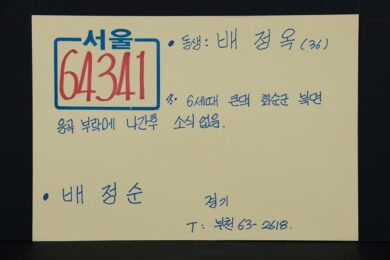 서울
64341
• 동생: 배 정 옥 (36)
※ 6세때 큰댁 화순군 북면
용곡 부락에 나간후 소식 없음.
• 배 정 순
경기
T: 부천 63-2618.